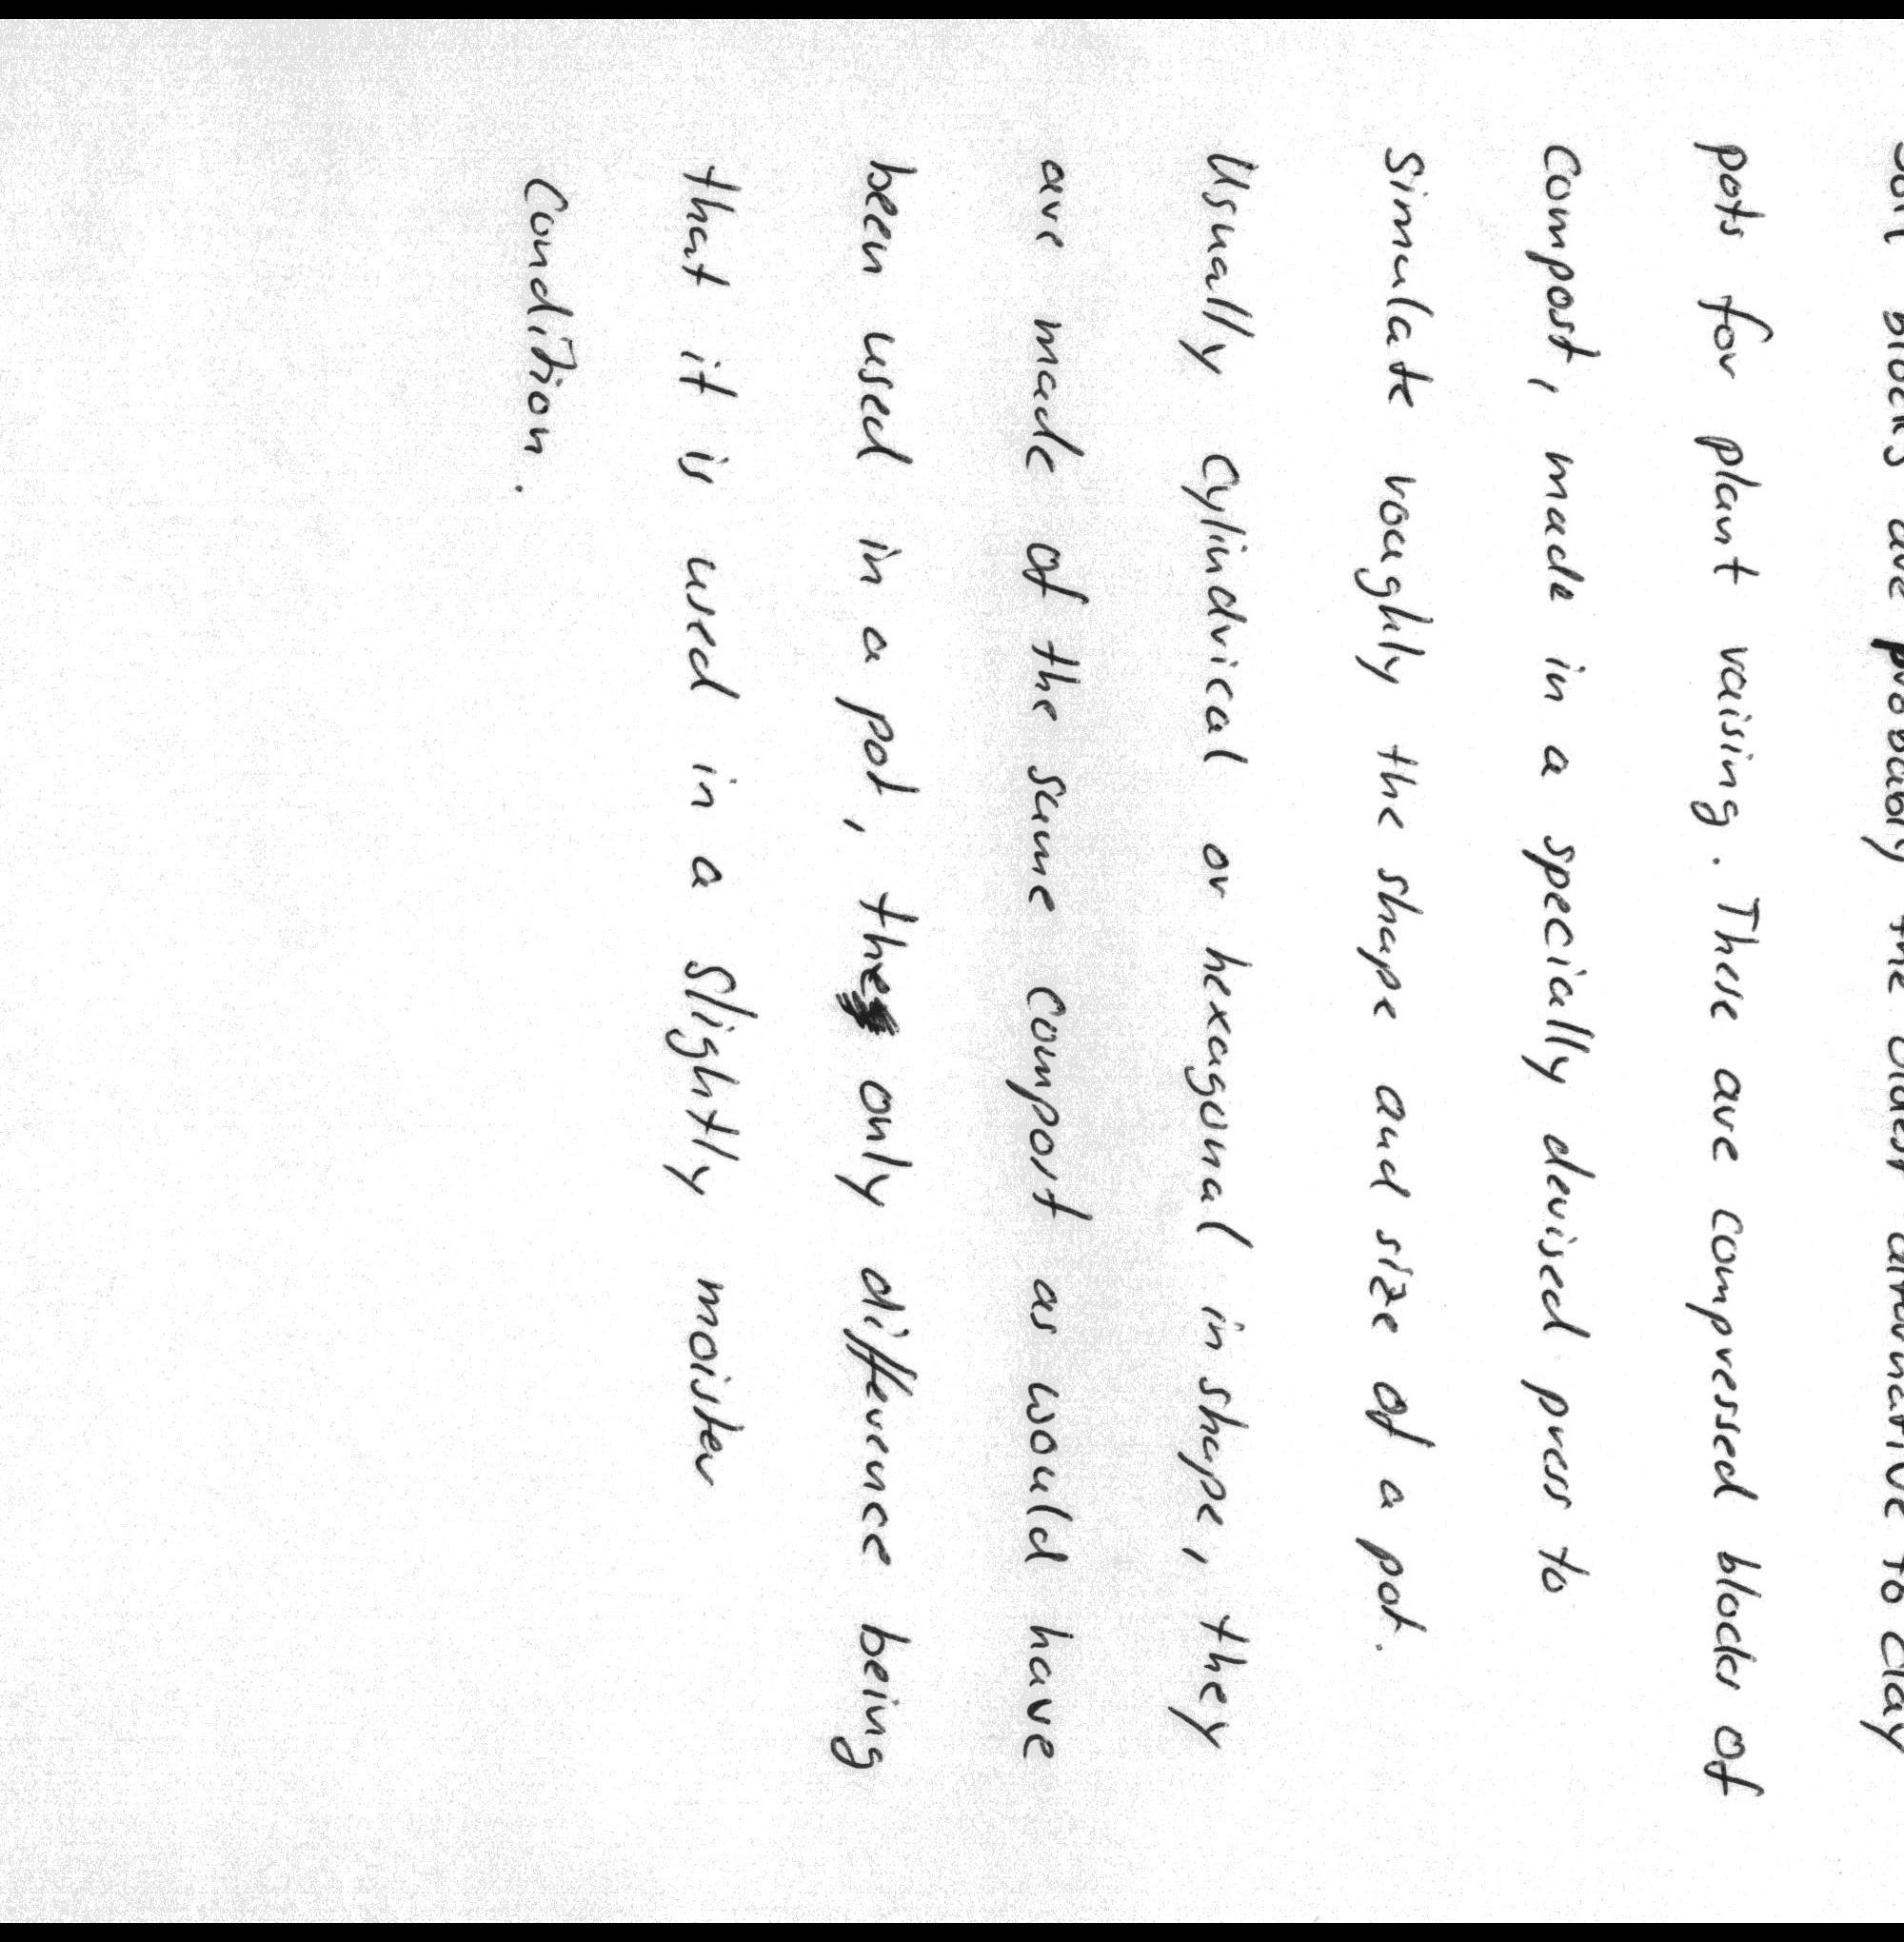 Soil blocks are probably the oldest alternative to clay
pots for plant raising. These are compressed blocks of
Compost, made in a specially devised press to
Simulate roughly the shape and size of a pot.
Usually Cylindrical or hexagonal in shape, they
are made of the same compost as would have
been used in a pot, the only difference being
that it is used in a slightly moister
Condition.